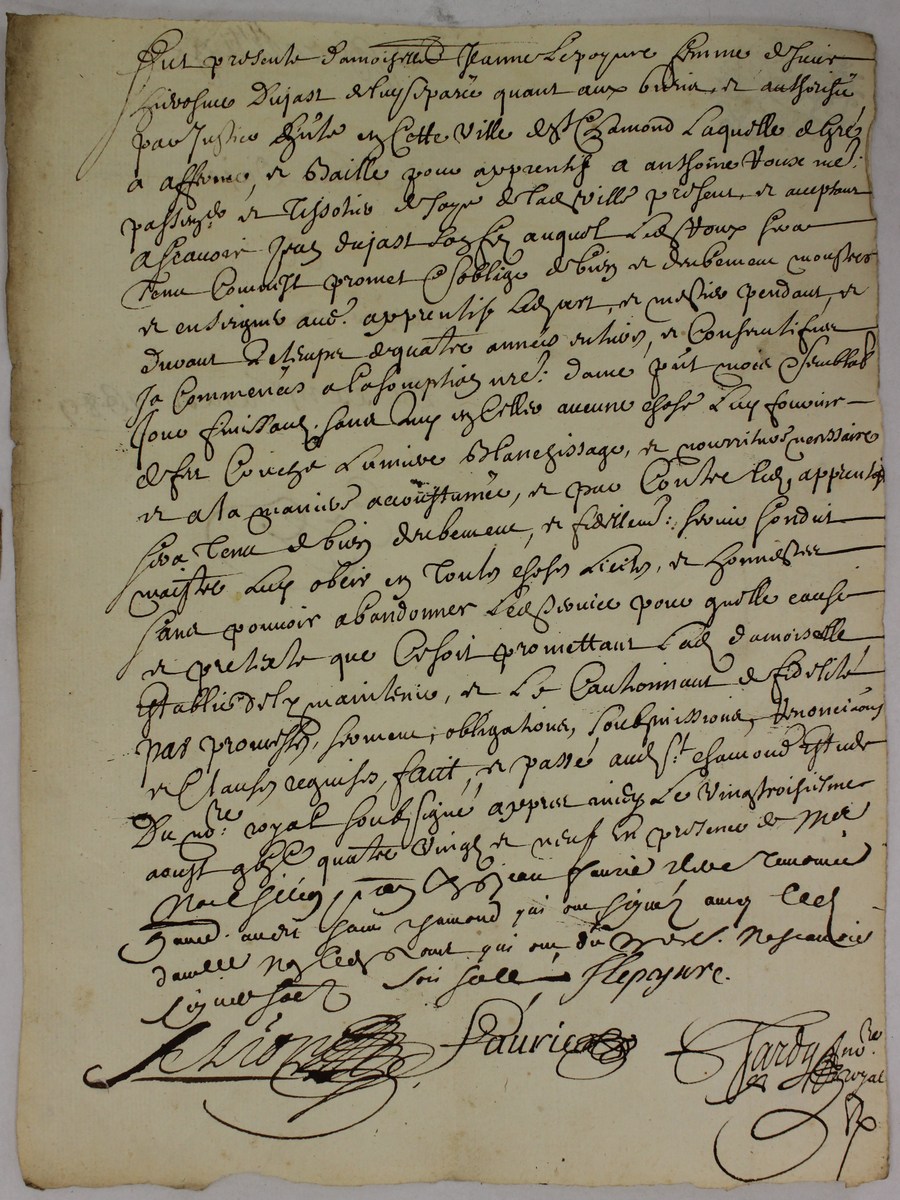 Fut presente damoiselle Jeanne Lepoyure femme de sieur
Hierosme Dujast de luy separée quant aux biens et authorisée
par Justice hũte en Cette ville de St Chamond Laquelle de gré
a affermé, et Baille pour apprentif a anthoine Roux me:
passem.r et Tissotier de soye de lad ville present et acceptant
ascavoir Jean dujast son fils auquel Led Roux sera
tenu Comm'Il promet et soblige de bien et deubement monstrer
et enseigner aud. apprentif Led art, et mestier pendant, et
durant Le temps de quatre années entieres, et Consecutifves
Ja Commencés a lasomption nre: dame pñt mois et semblab
Jour finissant. sans en Icelles aucune chose luy fournir
de fer Couche Lumiere Blanchissage, et nourriture necessaire
et a la maniere accoustumée, et par Contre led. apprentif
sera Tenu de bien deubement, et fidellem.: servir sondit
maistre Luy obeir en Toutes choses Licites, et honnestes
sans pouvoir abandonner Led service pour quelle cause
et pretexte que Ce soit promettant Lad damoiselle
establir maintenir, et Le Cautionnant de fidelité
par promesses, serment, obligations, soubmissions, Renonciaons
et Clauses requises, faict, et passé aud St. chamond Estude
Du nore. royal soubsigné appres midy Le Vingtroisiesme
aoust gbjc quatre Vingt et neuf En presence de Mre
Noel et Jean faurie
aud. Sainct chamond qui ont signés avec lad
damlle Non led Roux qui ont dũ Ne scavoir
signer
SLepoyure.
Faurie
Tardy nore.
royal